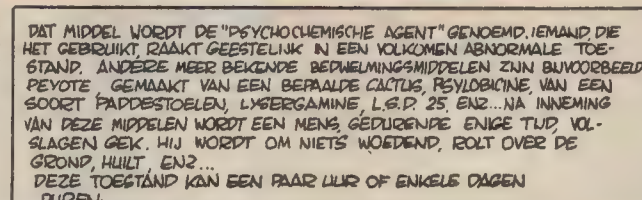 DAT MIDDEL WORDT DE "PSYCHOCHEMISCHE AGENT" GENOEMD. IEMAND, DIE
HET GEBRUIKT, RAAKT GEESTELIJK IN EEN VOLKOMEN ABNORMALE TOE-
STAND. ANDERE MEER BEKENDE BEDWELMINGSMIDDELEN ZIJN BIJVOORBEELD
PEYOTE, GEMAAKT VAN EEN BEPAALDE CACTUS, PSYLOBICINE, VAN EEN
SOORT PADDESTOELEN, LYSERGAMINE, L.S.D. 25, ENZ... NA INNEMING
VAN DEZE MIDDELEN WORDT EEN MENS, GEDURENDE ENIGE TIJD, VOL-
SLAGEN GEK. HIJ WORDT OM NIETS WOEDEND, ROLT OVER DE
GROND, HUILT, ENZ...
DEZE TOESTAND KAN EEN PAAR UUR OF ENKELE DAGEN
DUREN!